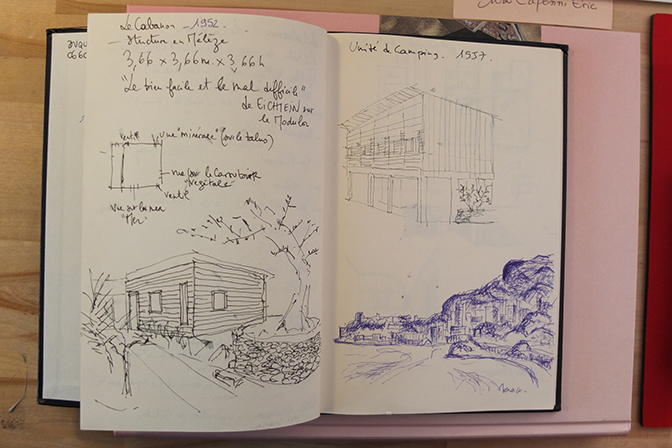 Le Cabanon - 1952.
- Structure en Mélèze
3,66 x 3,66m. x 3,66h
"Le bien facile et le mal difficile"
de EICHTEIN sur
le Modulor
ventil
vue "minérale" (sur le talus)
vue sur le Caroubier
"végétale"
ventil
vue sur la mer
"Mer"
Unité de Camping. 1957.
Eric